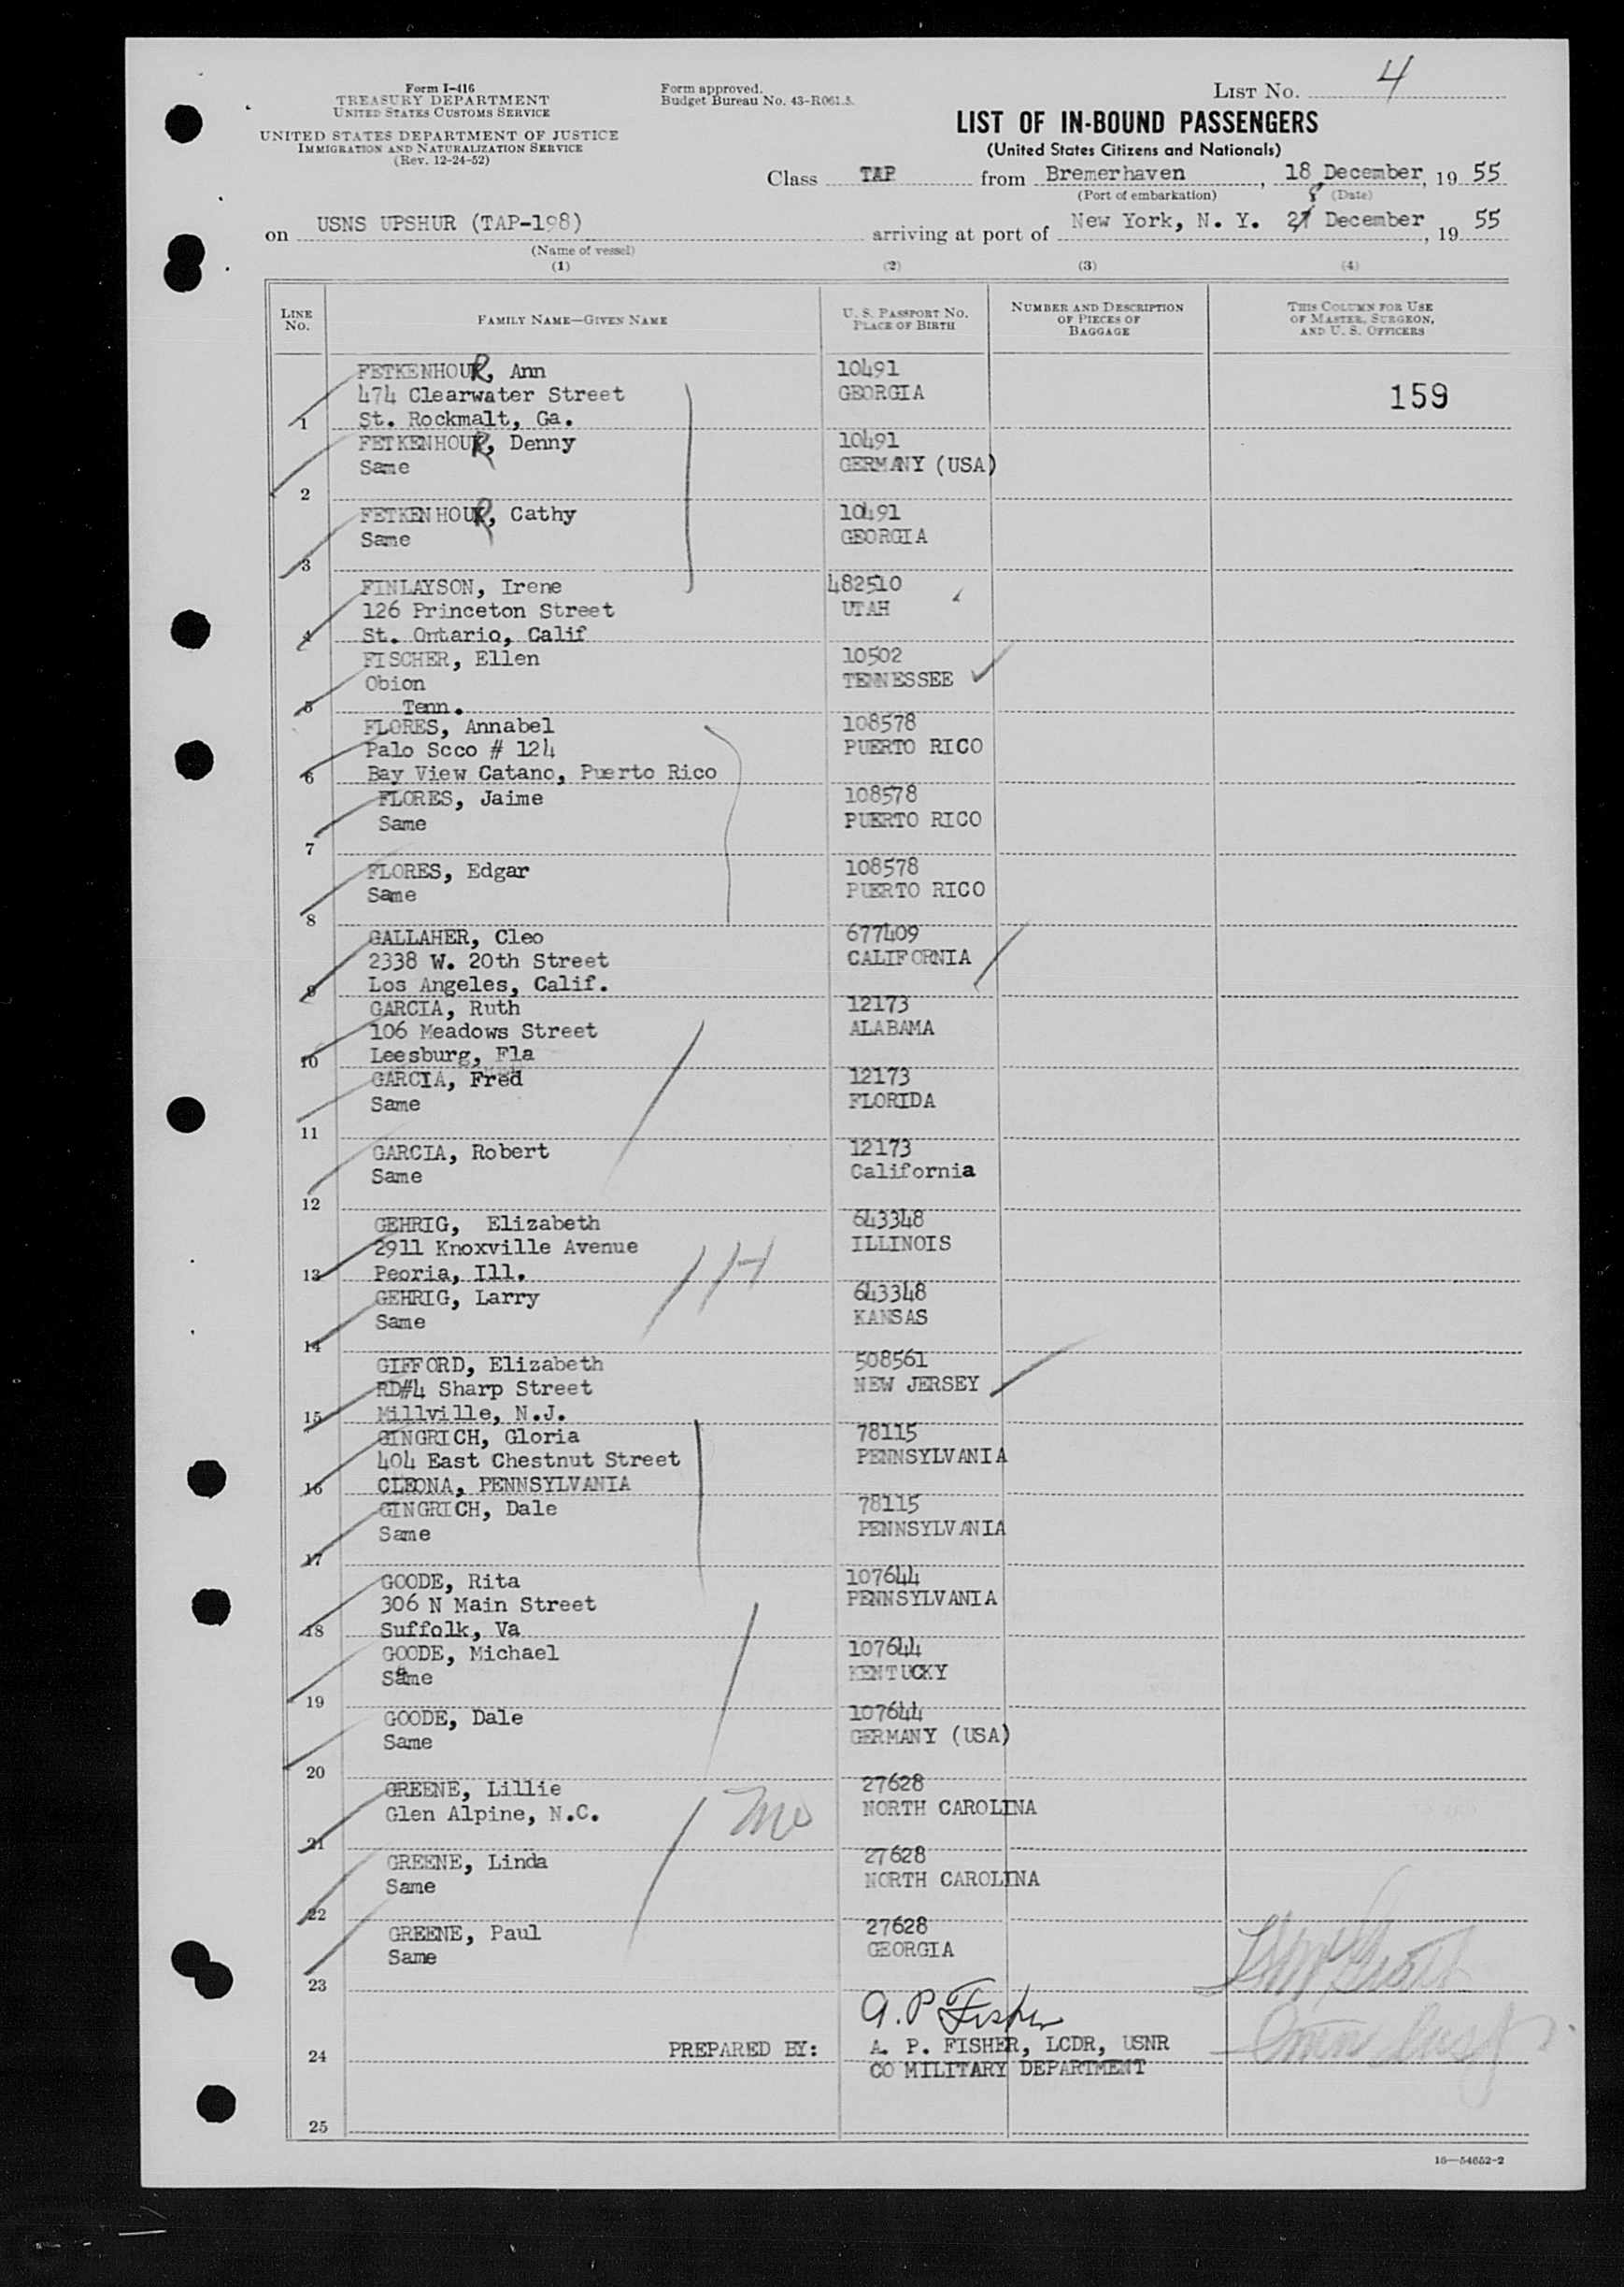 Form I-416
TREASURY DEPARTMENT
UNITED STATES CUSTOMS SERVICE
UNITED STATES DEPARTMENT OF JUSTICE
IMMIGRATION AND NATURALIZATION SERVICE
(Rev. 12-24-52)
Form approved.
Budget Bureau No. 43-R061.3.
LIST NO. 4
LIST OF IN-BOUND PASSENGERS
(United States Citizens and Nationals)
Class TAP from Bremerhaven, 18 December, 19 55
(Port of embarkation) (Date)
on USNS UPSHUR (TAP-198) arriving at port of New York, N. Y. 28 December, 19 55
(Name of vessel)
(1) (2) (3) (4)
LINE NO. FAMILY NAME—GIVEN NAME U. S. PASSPORT NO. PLACE OF BIRTH NUMBER AND DESCRIPTION OF PIECES OF BAGGAGE THIS COLUMN FOR USE OF MASTER, SURGEON, AND U. S. OFFICERS
FETKENHOUR, Ann 10491
474 Clearwater Street GEORGIA 159
1 St. Rockmalt, Ga.
FETKENHOUR, Denny 10491
Same GERMANY (USA)
2
FETKENHOUR, Cathy 10491
Same GEORGIA
3
FINLAYSON, Irene 482510
126 Princeton Street UTAH
4 St. Ontario, Calif
FISCHER, Ellen 10502
Obion TENNESSEE
5 Tenn.
FLORES, Annabel 108578
Palo Scco # 124 PUERTO RICO
6 Bay View Catano, Puerto Rico
FLORES, Jaime 108578
Same PUERTO RICO
7
FLORES, Edgar 108578
Same PUERTO RICO
8
GALLAHER, Cleo 677409
2338 W. 20th Street CALIFORNIA
9 Los Angeles, Calif.
GARCIA, Ruth 12173
106 Meadows Street ALABAMA
10 Leesburg, Fla
GARCIA, Fred 12173
Same FLORIDA
11
GARCIA, Robert 12173
Same California
12
GEHRIG, Elizabeth 643348
2911 Knoxville Avenue ILLINOIS
13 Peoria, Ill.
GEHRIG, Larry 643348
Same KANSAS
14
GIFFORD, Elizabeth 508561
RD#4 Sharp Street NEW JERSEY
15 Millville, N.J.
GINGRICH, Gloria 78115
404 East Chestnut Street PENNSYLVANIA
16 CLEONA, PENNSYLVANIA
GINGRICH, Dale 78115
Same PENNSYLVANIA
17
GOODE, Rita 107644
306 N Main Street PENNSYLVANIA
18 Suffolk, Va
GOODE, Michael 107644
Same KENTUCKY
19
GOODE, Dale 107644
Same GERMANY (USA)
20
GREENE, Lillie 27628
Glen Alpine, N.C. NORTH CAROLINA
21
GREENE, Linda 27628
Same NORTH CAROLINA
22
GREENE, Paul 27628
Same GEORGIA
23
A. P Fisher
PREPARED BY: A. P. FISHER, LCDR, USNR
24
CO MILITARY DEPARTMENT
25
16—54652-2